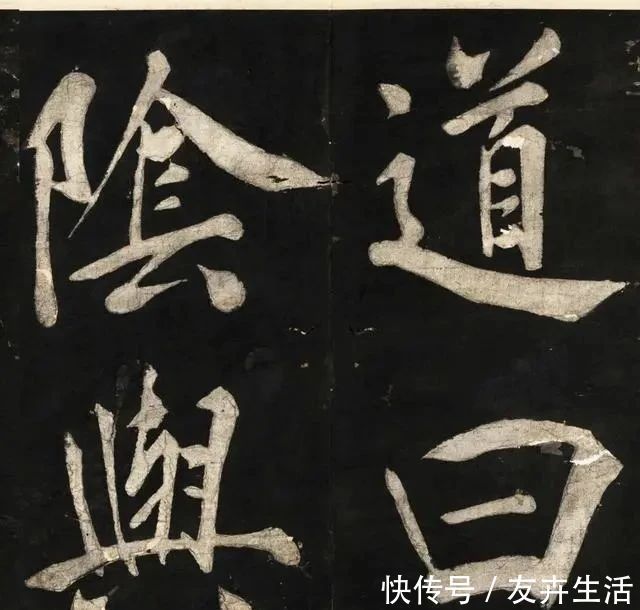 道曰
陰與
快传号 / 友卉生活